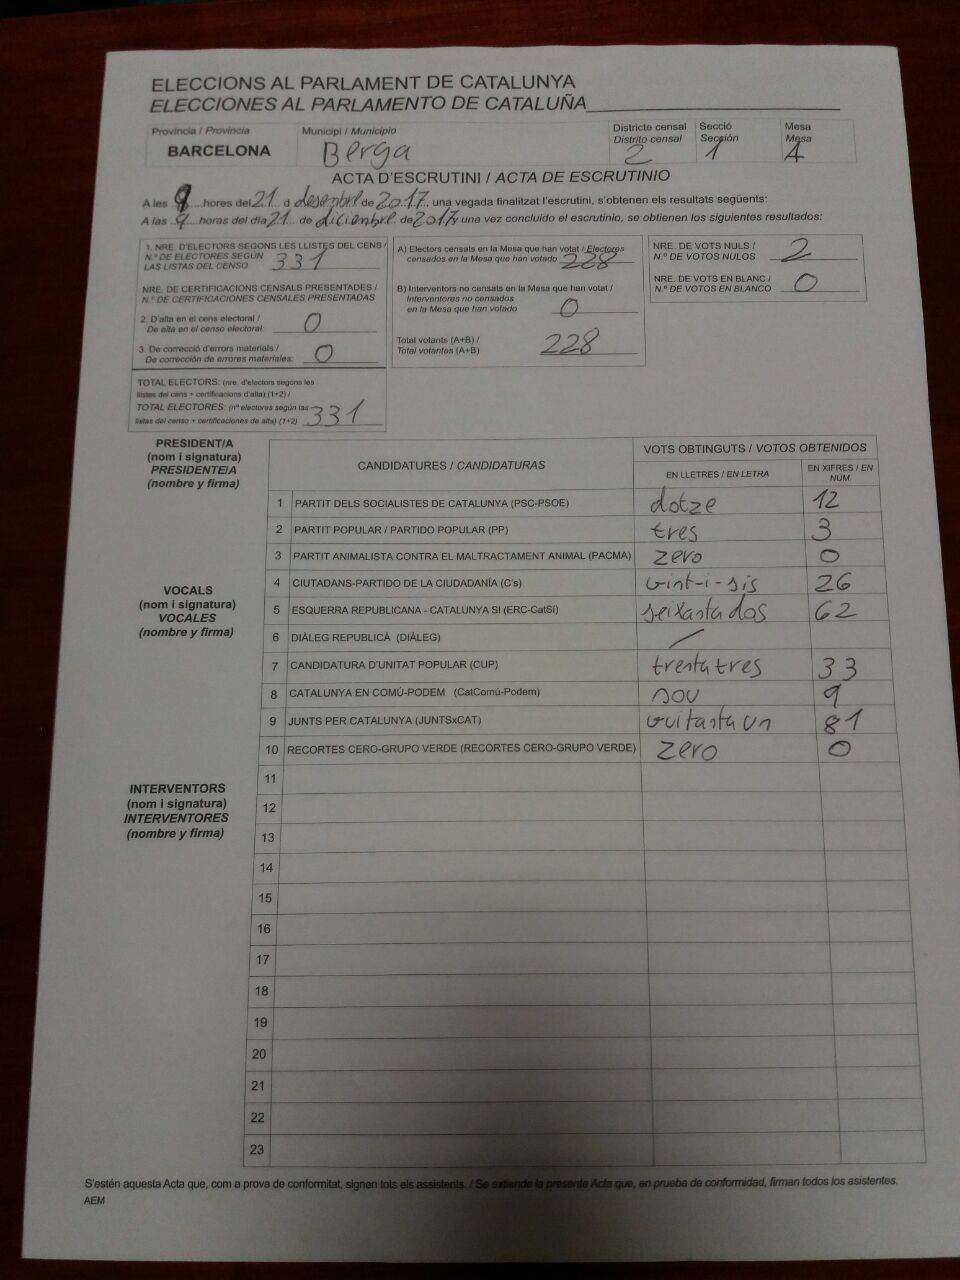 ELECCIONS AL PARLAMENT DE CATALUNYA
ELECCIONES AL PARLAMENTO DE CATALUÑA
Provincia / Provincia
BARCELONA
Municipi / Municipio
Berga
Districte censal
Distrito censal
2
Secció
Sección
1
Mesa
Mesa
A
ACTA D'ESCRUTINI / ACTA DE ESCRUTINIO
A les 9 hores del 21 d desembre de 2017, una vegada finalitzat l'escrutini, s'obtenen els resultats següents:
A las 9 horas del día 21 de diciembre de 2017 una vez concluido el escrutinio, se obtienen los siguientes resultados:
1. NRE. D'ELECTORS SEGONS LES LLISTES DEL CENS /
N.º DE ELECTORES SEGÚN
LAS LISTAS DEL CENSO 331
NRE. DE CERTIFICACIONS CENSALS PRESENTADES /
N.º DE CERTIFICACIONES CENSALES PRESENTADAS
2. D'alta en el cens electoral /
De alta en el censo electoral: 0
3. De correcció d'errors materials /
De corrección de errores materiales: 0
TOTAL ELECTORS: (nre. d'electors segons les
llistes del cens + certificacions d'alta) (1+2) /
TOTAL ELECTORES: (nº electores según las
listas del censo + certificaciones de alta) (1+2) 331
A) Electors censats en la Mesa que han votat / Electores
censados en la Mesa que han votado 228
B) Interventors no censats en la Mesa que han votat /
Interventores no censados
en la Mesa que han votado 0
Total votants (A+B) /
Total votantes (A+B) 228
NRE. DE VOTS NULS /
N.º DE VOTOS NULOS 2
NRE. DE VOTS EN BLANC /
N.º DE VOTOS EN BLANCO 0
PRESIDENT/A
(nom i signatura)
PRESIDENTE/A
(nombre y firma)
VOCALS
(nom i signatura)
VOCALES
(nombre y firma)
INTERVENTORS
(nom i signatura)
INTERVENTORES
(nombre y firma)
CANDIDATURES / CANDIDATURAS
VOTS OBTINGUTS / VOTOS OBTENIDOS
EN LLETRES / EN LETRA
EN XIFRES / EN
NÚM.
1 PARTIT DELS SOCIALISTES DE CATALUNYA (PSC-PSOE) dotze 12
2 PARTIT POPULAR / PARTIDO POPULAR (PP) tres 3
3 PARTIT ANIMALISTA CONTRA EL MALTRACTAMENT ANIMAL (PACMA) zero 0
4 CIUTADANS-PARTIDO DE LA CIUDADANÍA (C's) vint-i-sis 26
5 ESQUERRA REPUBLICANA - CATALUNYA SI (ERC-CatSí) seixanta dos 62
6 DIÀLEG REPUBLICÀ (DIÀLEG) /
7 CANDIDATURA D'UNITAT POPULAR (CUP) trenta tres 33
8 CATALUNYA EN COMÚ-PODEM (CatComú-Podem) nou 9
9 JUNTS PER CATALUNYA (JUNTSxCAT) vuitanta un 81
10 RECORTES CERO-GRUPO VERDE (RECORTES CERO-GRUPO VERDE) zero 0
11
12
13
14
15
16
17
18
19
20
21
22
23
S'estén aquesta Acta que, com a prova de conformitat, signen tots els assistents. / Se extiende la presente Acta que, en prueba de conformidad, firman todos los asistentes.
AEM